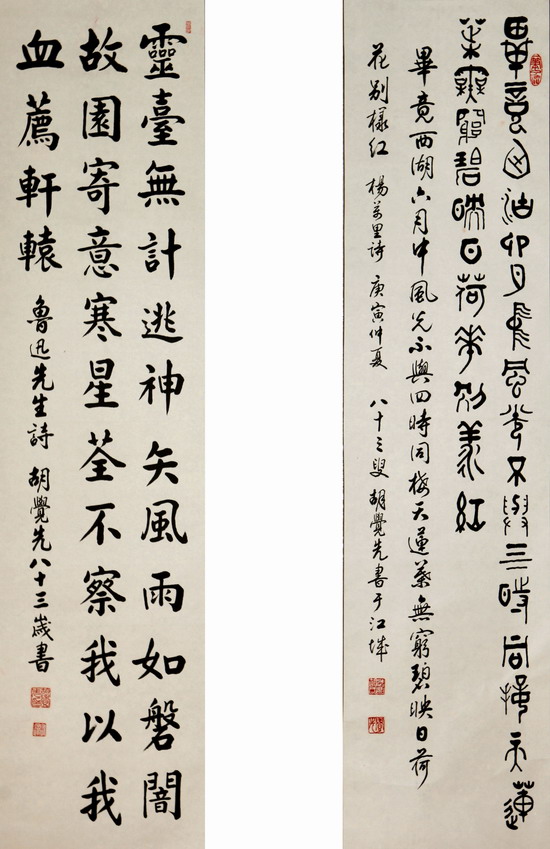 畢竟西湖六月中風光不與四時同接天蓮
葉無窮碧映日荷華別樣紅
畢竟西湖六月中風光不與四時同接天蓮葉無窮碧映日荷
花別樣紅 楊萬里詩 庚寅仲夏 八十三叟胡覺先書于江城
靈臺無計逃神矢風雨如磐闇
故園寄意寒星荃不察我以我
血薦軒轅 魯迅先生詩 胡覺先八十三歲書